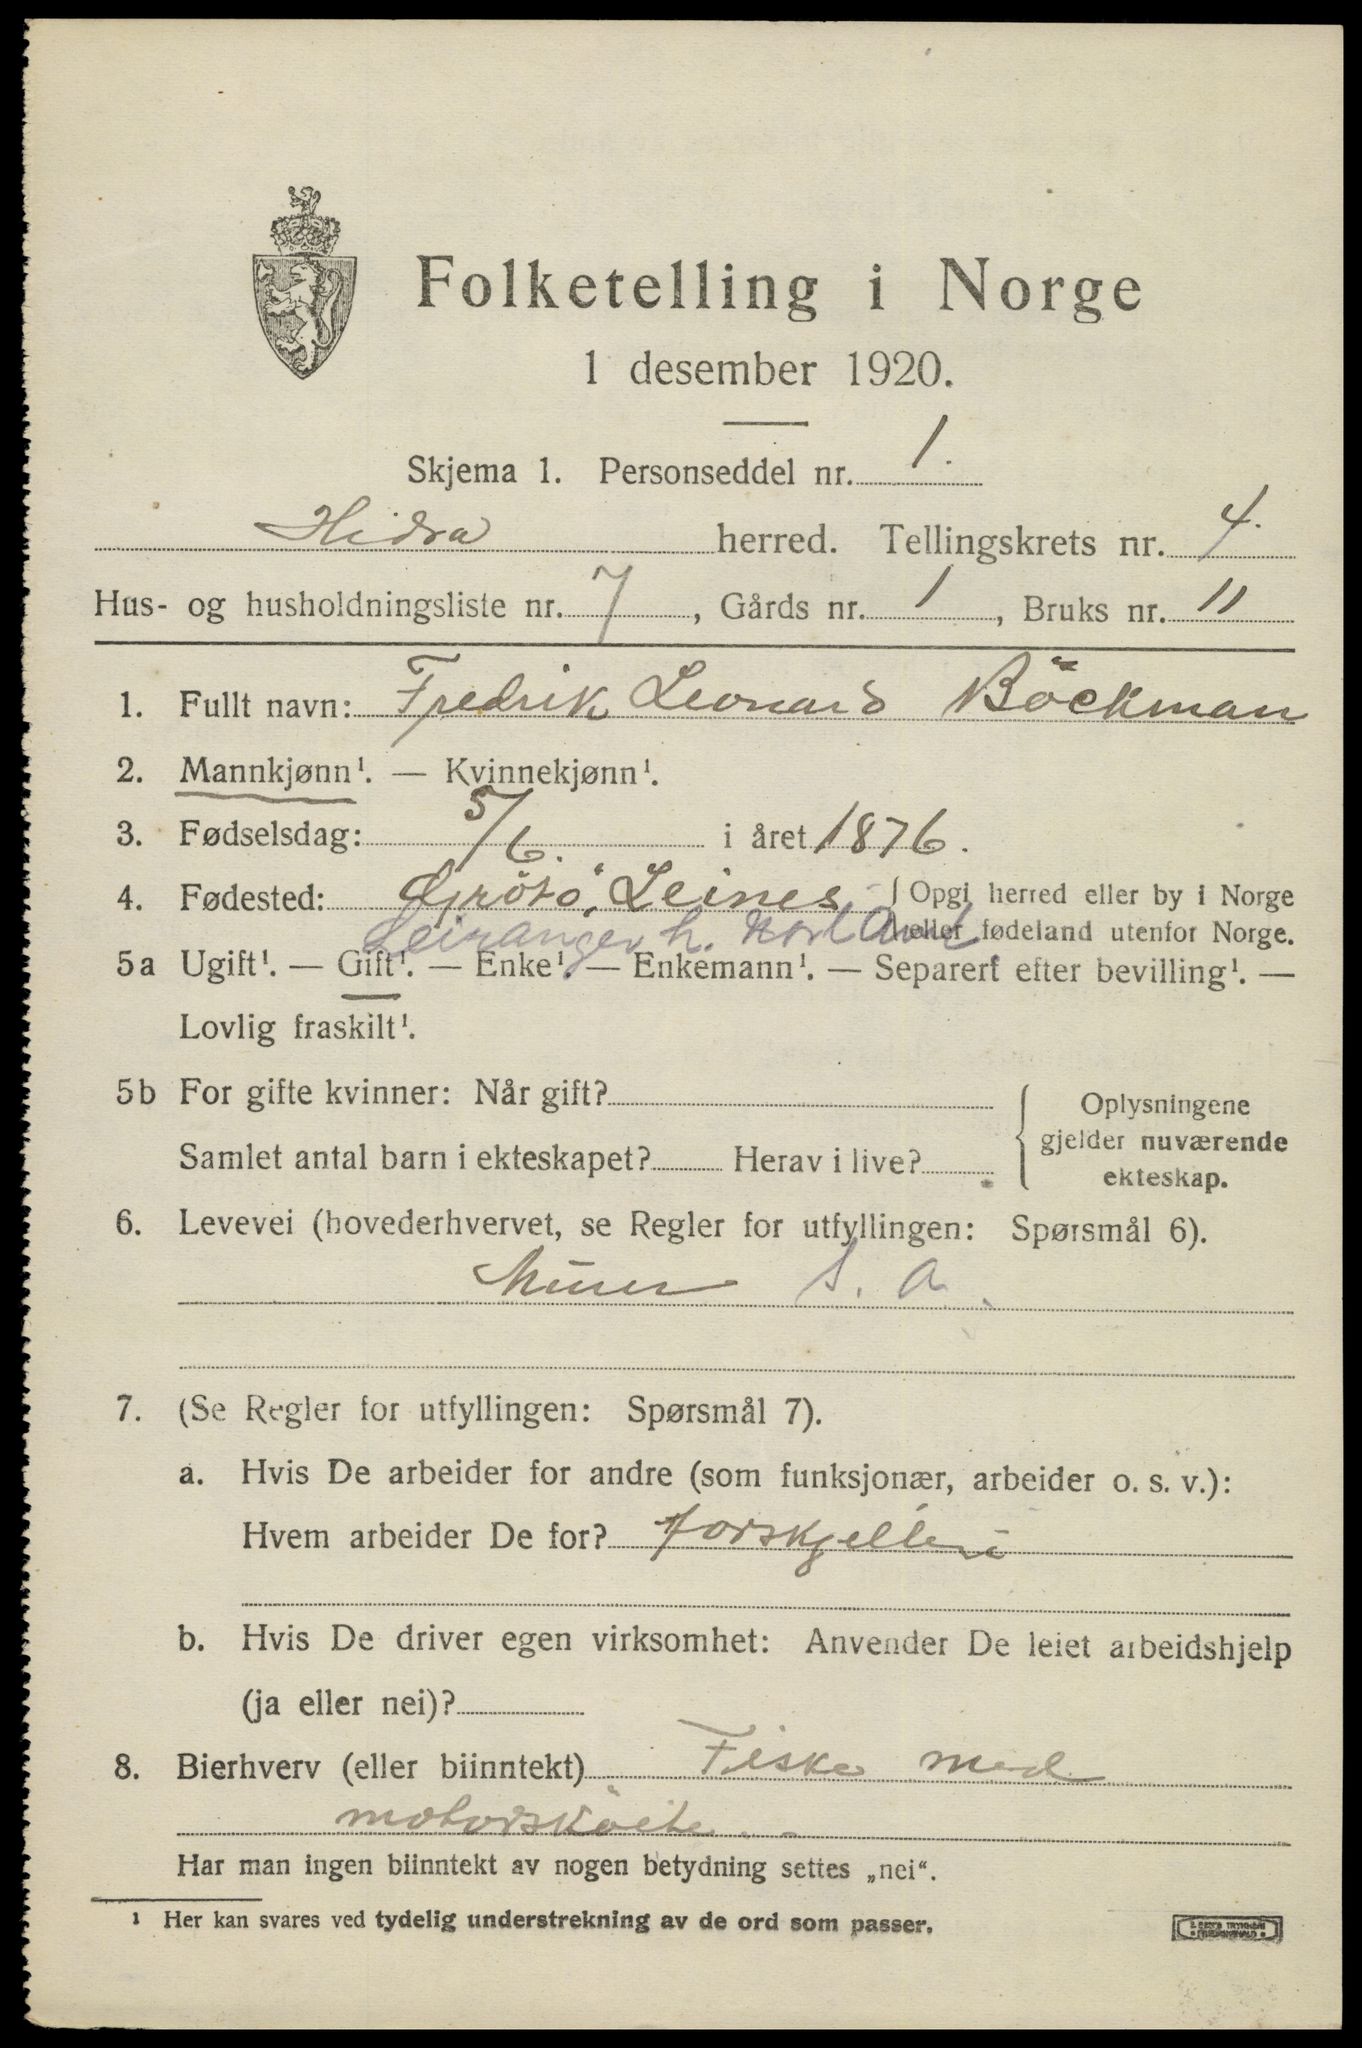 Folketelling i Norge
1 desember 1920.
Skjema 1. Personseddel nr. 1.
Hidra herred. Tellingskrets nr. 4.
Hus- og husholdningsliste nr. 7, Gårds nr. 1, Bruks nr. 11
1. Fullt navn: Fredrik Leonard Böckman
2. Mannkjønn¹. — Kvinnekjønn¹.
3. Fødselsdag: 5/6. i året 1876.
4. Fødested: Grötö, Leines { Opgi herred eller by i Norge
Leiranger h. Nordland eller fødeland utenfor Norge.
5a Ugift¹. — Gift¹. — Enke¹. — Enkemann¹. — Separert efter bevilling¹. —
Lovlig fraskilt¹.
5b For gifte kvinner: Når gift? { Oplysningene
gjelder nuværende
Samlet antal barn i ekteskapet? Herav i live?
ekteskap.
6. Levevei (hovederhvervet, se Regler for utfyllingen: Spørsmål 6).
Murer S. A.
7. (Se Regler for utfyllingen: Spørsmål 7).
a. Hvis De arbeider for andre (som funksjonær, arbeider o. s. v.):
Hvem arbeider De for? forskjellige
b. Hvis De driver egen virksomhet: Anvender De leiet arbeidshjelp
(ja eller nei)?
8. Bierhverv (eller biinntekt) Fiske med
motorsköite
Har man ingen biinntekt av nogen betydning settes „nei“.
¹ Her kan svares ved tydelig understrekning av de ord som passer.